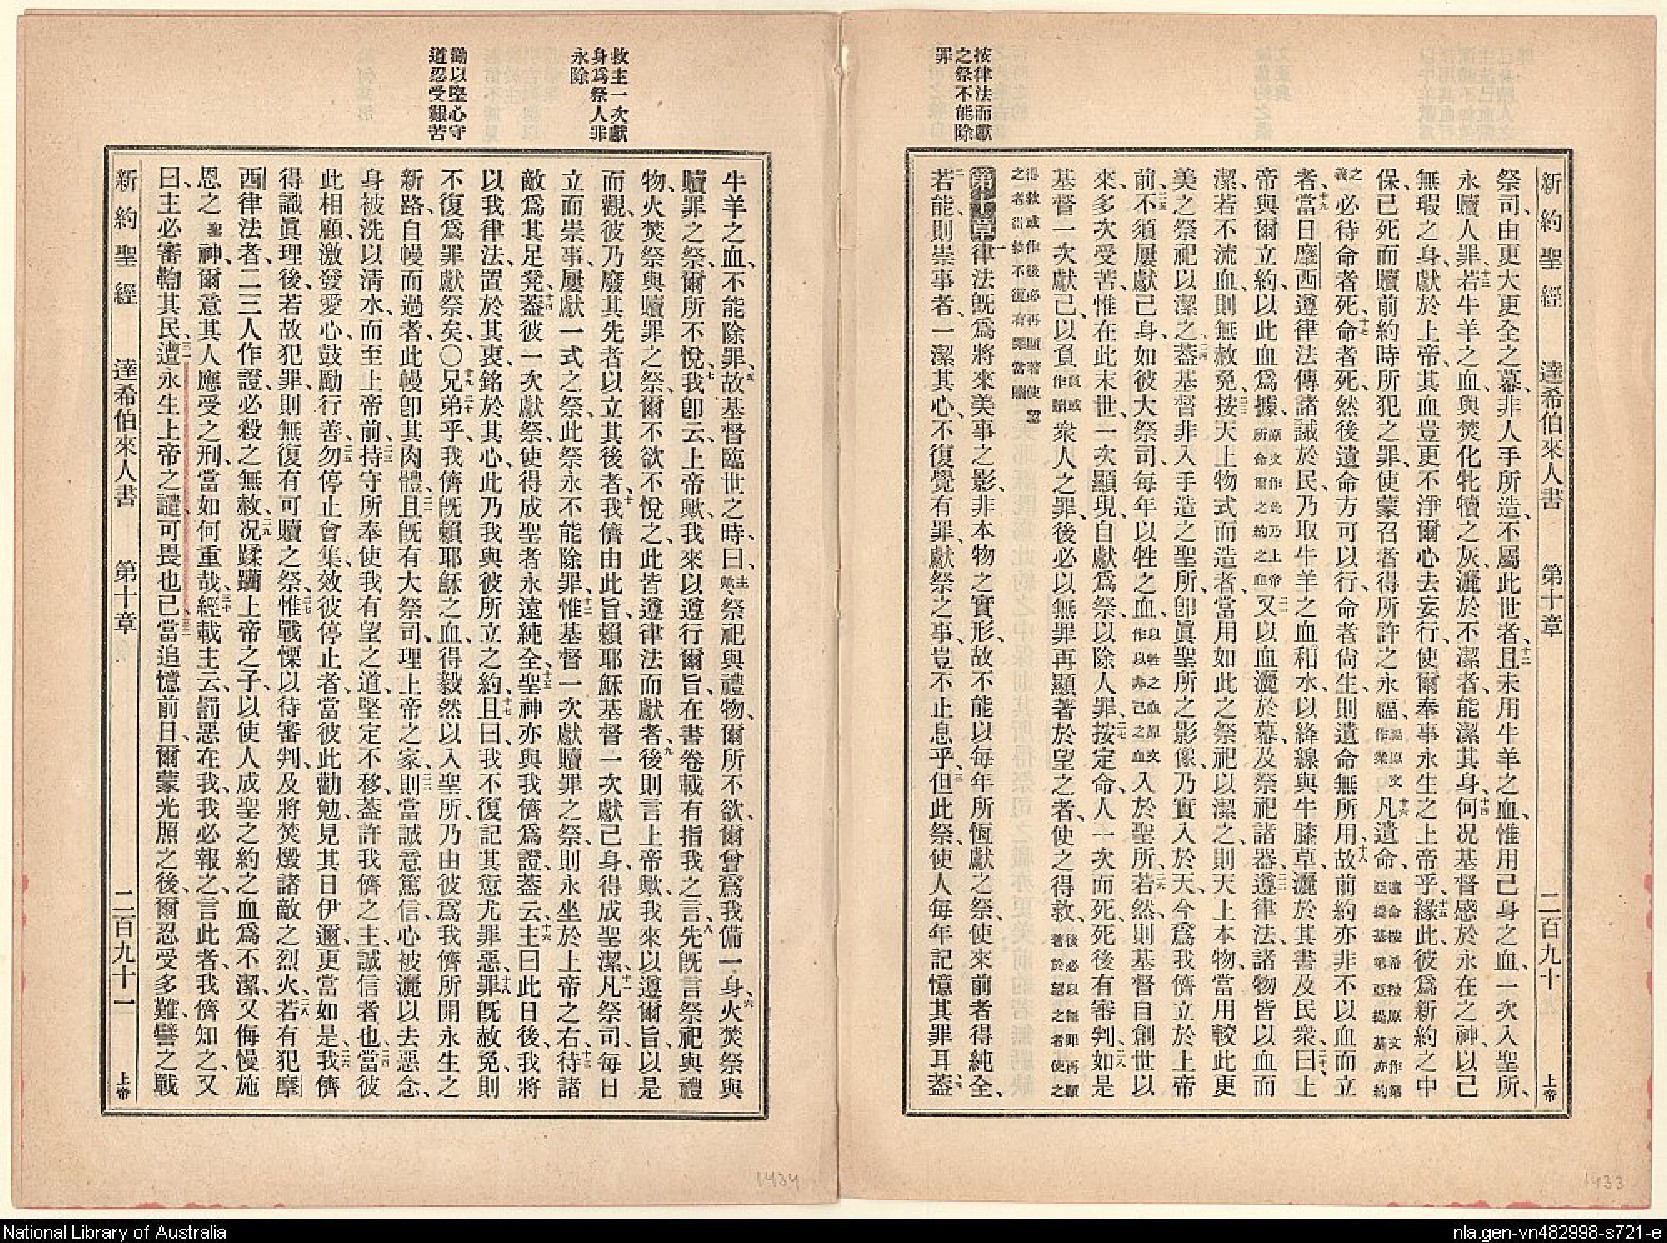 新約聖經 達希伯來人書 第十章 二百九十 上帝
祭司、由更大更全之幕、非人手所造、不屬此世者、十二且未用牛羊之血、惟用己身之血、一次入聖所、
永贖人罪、十三若牛羊之血、與焚化牝犢之灰、灑於不潔者、能潔其身、十四何況基督感於永在之神、以己
無瑕之身、獻於上帝、其血豈更不淨爾心、去妄行、使爾奉事永生之上帝乎、十五緣此彼爲新約之中
保、己死而贖前約時所犯之罪、使蒙召者得所許之永福、十六凡遺命、
必待命者死、十七命者死、然後遺命方可以行、命者尙生、則遺命無所用、十八故前約亦非不以血而立
者、十九當日摩西遵律法傳諸誡於民、乃取牛羊之血和水、以絳線與牛膝草、灑於其書及民衆、二十曰、上
帝與爾立約、以此血爲據、原文作此乃上帝所命爾之約之血二一又以血灑於幕、及祭祀諸器、二二遵律法、諸物皆以血而
潔、若不流血、則無赦免、二三按天上物式而造者、當用如此之祭祀以潔之、則天上本物、當用較此更
美之祭祀以潔之、二四蓋基督非入手造之聖所、卽眞聖所之影像、乃實入於天、今爲我儕立於上帝
前、二五不須屢獻己身、如彼大祭司每年以牲之血、以牲之血原文作以非己之血入於聖所、二六若然、則基督自創世以
來、多次受苦、惟在此末世、一次顯現、自獻爲祭、以除人罪、二七按定命、人一次而死、死後有審判、二八如是
基督一次獻己、以負負或作贖衆人之罪、後必以無罪再顯著於望之者、使之得救、後必以無罪再顯著於望之者使之
得救或作後必再顯著使望之者得救不復有罪當贖
第十章一律法旣爲將來美事之影、非本物之實形、故不能以每年所恆獻之祭、使來前者得純全、
二若能、則崇事者、一潔其心、不復覺有罪、獻祭之事、豈不止息乎、三但此祭、使人每年記憶其罪耳、四蓋
按律法而獻
之祭不能除
罪
牛羊之血、不能除罪、五故基督臨世之時曰、主歟祭祀與禮物、爾所不欲、爾曾爲我備一身、六火焚祭與
贖罪之祭、爾所不悅、七我卽云、上帝歟、我來以遵行爾旨、在書卷載有指我之言、八先旣言祭祀與禮
物、火焚祭與贖罪之祭、爾不欲不悅之、此皆遵律法而獻者、九後則言上帝歟、我來以遵爾旨、以是
而觀、彼乃廢其先者、以立其後者、十我儕由此旨、賴耶穌基督一次獻己身、得成聖潔、十一凡祭司、每日
立而崇事、屢獻一式之祭、此祭永不能除罪、十二惟基督一次獻贖罪之祭、則永坐於上帝之右、十三待諸
敵爲其足凳、十四蓋彼一次獻祭、使得成聖者、永遠純全、十五聖神亦與我儕爲證、蓋云、十六主曰、此日後、我將
以我律法、置於其衷、銘於其心、此乃我與彼所立之約、十七且曰、我不復記其愆尤罪惡、十八罪旣赦免、則
不復爲罪獻祭矣、〇十九兄弟乎、我儕旣賴耶穌之血、得毅然以入聖所、二十乃由彼爲我儕所開永生之
新路、自幔而過者、此幔卽其肉體、二一且旣有大祭司、理上帝之家、二二則當誠意篤信、心被灑以去惡念、
身被洗以淸水、而至上帝前、二三持守所奉使我有望之道、堅定不移、蓋許我儕之主、誠信者也、二四當彼
此相顧、激發愛心、鼓勵行善、二五勿停止會集、效彼停止者、當彼此勸勉、見其日伊邇、更當如是、二六我儕
得識眞理後、若故犯罪、則無復有可贖之祭、二七惟戰慄以待審判、及將焚燬諸敵之烈火、二八若有犯摩
西律法者、二三人作證、必殺之無赦、二九況蹂躪上帝之子、以使人成聖之約之血爲不潔、又侮慢施
恩之聖神、爾意其人應受之刑、當如何重哉、三十經載主云、罰惡在我、我必報之、言此者、我儕知之、又
曰、主必審鞫其民、三一遭永生上帝之譴、可畏也已、三二當追憶前日、爾蒙光照之後、爾忍受多難、譬之戰
救主一次獻
身爲祭人罪
永除
勖以堅心守
道忍受艱苦
新約聖經 達希伯來人書 第十章 二百九十一 上帝
1434
1433
National Library of Australia
nla.gen-vn482998-s721-e